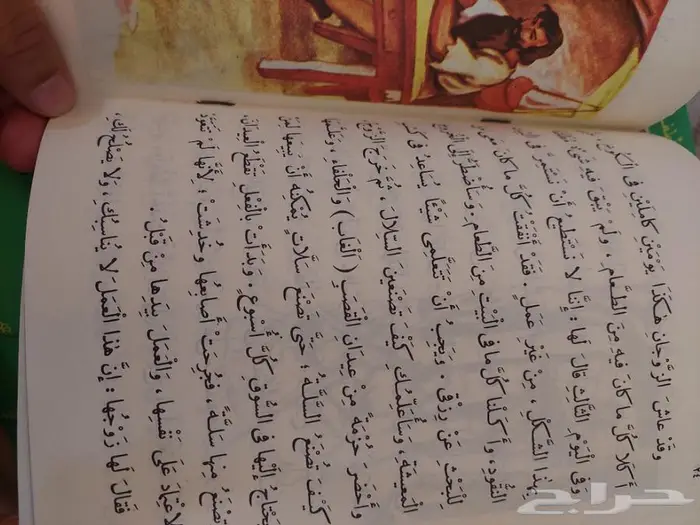 وَقَدْ عَاشَ الزَّوْجَانِ هٰكَذَا يَوْمَيْنِ كَامِلَيْنِ فِى
أَكَلَا كُلَّ مَا كَانَ فِيهِ مِنَ الطَّعَامِ ، وَلَمْ يَبْقَ فِيهِ
وَفِى الْيَوْمِ الثَّالِثِ قَالَ لَهَا : إِنَّنَا لَا نَسْتَطِيعُ أَنْ نَسْتَمِرَّ
بِهٰذَا الشَّكْلِ ، مِنْ غَيْرِ عَمَلٍ . فَقَدْ أَنْفَقْتُ كُلَّ مَا كَانَ
النُّقُودِ ، وَأَكَلْنَا كُلَّ مَا فِى الْبَيْتِ مِنَ الطَّعَامِ . وَسَأُضْطَرُّ إِلَى
لِلْبَحْثِ عَنْ رِزْقٍ . وَيَجِبُ أَنْ تَتَعَلَّمِى شَيْئًا يُسَاعِدُ فِى
الْمَعِيشَةِ ، وَسَأُعَلِّمُكِ كَيْفَ تَصْنَعِينَ السِّلَالَ . ثُمَّ خَرَجَ الزَّوْجُ
وَأَحْضَرَ حُزْمَةً مِنْ عِيدَانِ الْقَصَبِ ( الْغَابِ ) وَالْحَلْفَاءِ ، وَعَلَّمَهَا
كَيْفَ تَصْنَعُ السَّلَّةَ ؛ حَتَّى تَصْنَعَ سَلَّاتٍ يُمْكِنُهُ أَنْ يَبِيعَهَا لِمَنْ
يَحْتَاجُ إِلَيْهَا فِى السُّوقِ كُلَّ أُسْبُوعٍ . وَبَدَأَتْ بِالْفِعْلِ تَقْطَعُ الْعِيدَانَ
تَصْنَعُ مِنْهَا سَلَّةً ، فَجُرِحَتْ أَصَابِعُهَا وَخُدِشَتْ ؛ لِأَنَّهَا لَمْ تَتَعَوَّدْ
الِاعْتِمَادَ عَلَى نَفْسِهَا ، وَالْعَمَلَ بِيَدِهَا مِنْ قَبْلُ .
فَقَالَ لَهَا زَوْجُهَا : إِنَّ هٰذَا الْعَمَلَ لَا يُنَاسِبُكِ ، وَلَا يَصْلُحُ لَكِ ،
حراج